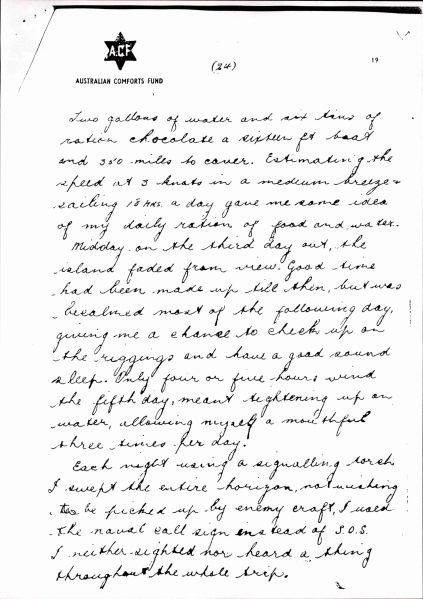 A.C.F
AUSTRALIAN COMFORTS FUND
(24)
19
Two gallons of water and six tins of
ration chocolate a sixteen ft boat
and 350 miles to cover. Estimating the
speed at 3 knots in a medium breeze &
sailing 18 hrs. a day gave me some idea
of my daily ration of food and water.
Midday on the third day out, the
island faded from view. Good time
had been made up till then, but was
becalmed most of the following day,
giving me a chance to check up on
the riggings and have a good sound
sleep. Only four or five hours wind
the fifth day, meant tightening up on
water, allowing myself a mouthful
three times per day.
Each night using a signalling torch
I swept the entire horizon, not wishing
to be picked up by enemy craft, I used
the naval call sign instead of S.O.S.
I neither sighted nor heard a thing
throughout the whole trip.